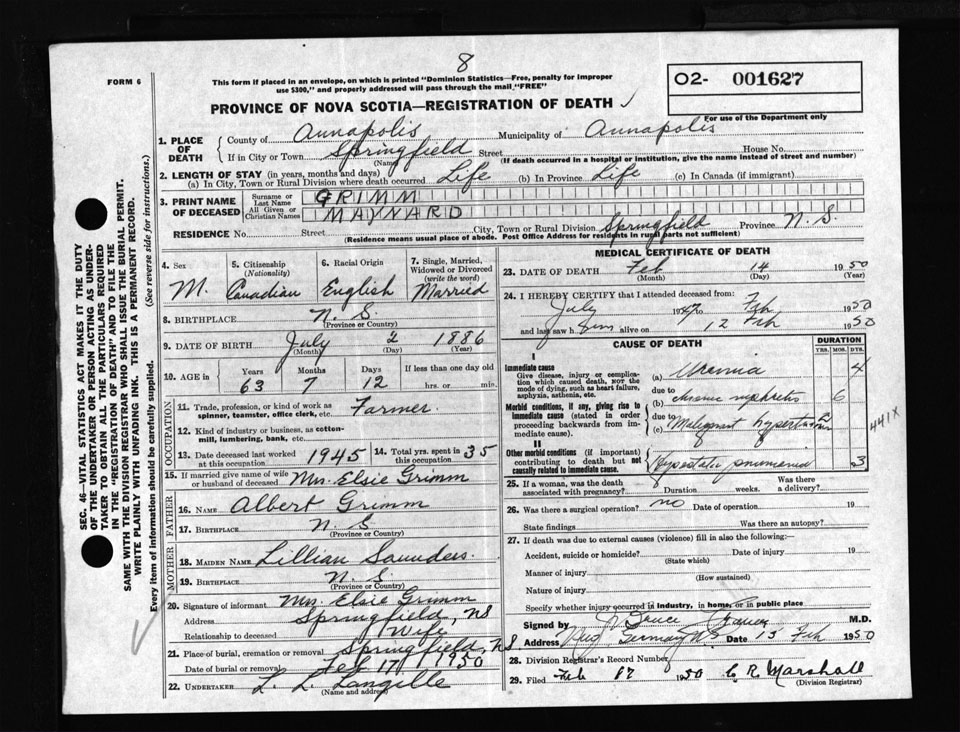 8
FORM 6
This form if placed in an envelope, on which is printed "Dominion Statistics—Free, penalty for improper
use $300," and properly addressed will pass through the mail "FREE"
O2- 001627
For use of the Department only
PROVINCE OF NOVA SCOTIA—REGISTRATION OF DEATH ✓
1. PLACE OF DEATH
County of Annapolis Municipality of Annapolis
If in City or Town Springfield Street House No.
(Name) (If death occurred in a hospital or institution, give the name instead of street and number)
2. LENGTH OF STAY (in years, months and days)
(a) In City, Town or Rural Division where death occurred Life (b) In Province Life (c) In Canada (if immigrant)
3. PRINT NAME OF DECEASED
Surname or Last Name GRIMM
All Given or Christian Names MAYNARD
RESIDENCE No. Street City, Town or Rural Division Springfield Province N. S.
(Residence means usual place of abode. Post Office Address for residents in rural parts not sufficient)
4. Sex M.
5. Citizenship (Nationality) Canadian
6. Racial Origin English
7. Single, Married, Widowed or Divorced (write the word) Married
8. BIRTHPLACE N. S.
(Province or Country)
9. DATE OF BIRTH July 2 1886
(Month) (Day) (Year)
10. AGE in Years 63 Months 7 Days 12 If less than one day old hrs. or min.
OCCUPATION
11. Trade, profession, or kind of work as spinner, teamster, office clerk, etc. Farmer.
12. Kind of industry or business, as cotton-mill, lumbering, bank, etc.
13. Date deceased last worked at this occupation 1945
14. Total yrs. spent in this occupation 35
15. If married give name of wife or husband of deceased Mrs. Elsie Grimm
FATHER
16. NAME Albert Grimm
17. BIRTHPLACE N. S
(Province or Country)
MOTHER
18. MAIDEN NAME Lillian Saunders.
19. BIRTHPLACE N. S
(Province or Country)
20. Signature of informant Mrs. Elsie Grimm
Address Springfield, NS
Relationship to deceased Wife
21. Place of burial, cremation or removal Springfield, NS
Date of burial or removal Feb 17 1950
22. UNDERTAKER L. L. Langille
(Name and address)
MEDICAL CERTIFICATE OF DEATH
23. DATE OF DEATH Feb 14 1950
(Month) (Day) (Year)
24. I HEREBY CERTIFY that I attended deceased from:
July 1947 to Feb 1950
and last saw him alive on 12 Feb 1950
CAUSE OF DEATH
DURATION
YRS. MOS. DYS.
I
Immediate cause
Give disease, injury or complication which caused death, NOT the mode of dying, such as heart failure, asphyxia, asthenia, etc.
(a) Uremia 4
due to
(b) chronic nephritis 6
Morbid conditions, if any, giving rise to immediate cause (stated in order proceeding backwards from immediate cause).
due to
(c) Malignant hypertension
441X
II
Other morbid conditions (if important) contributing to death but not causally related to immediate cause.
Hypostatic pneumonia 3
25. If a woman, was the death associated with pregnancy? Duration weeks. Was there a delivery?
26. Was there a surgical operation? no Date of operation. 19
State findings Was there an autopsy?
27. If death was due to external causes (violence) fill in also the following:—
Accident, suicide or homicide? Date of injury 19
(State which)
Manner of injury
(How sustained)
Nature of injury
Specify whether injury occurred in industry, in home, or in public place
Signed by M.D.
Address Date 15 Feb 1950
28. Division Registrar's Record Number
29. Filed Feb 17 1950 C R Marshall
(Division Registrar)
SEC. 46—VITAL STATISTICS ACT MAKES IT THE DUTY
OF THE UNDERTAKER OR PERSON ACTING AS UNDER-
TAKER TO OBTAIN ALL THE PARTICULARS REQUIRED
IN THE "REGISTRATION OF DEATH" AND TO FILE THE
SAME WITH THE DIVISION REGISTRAR WHO SHALL ISSUE THE BURIAL PERMIT.
WRITE PLAINLY WITH UNFADING INK. THIS IS A PERMANENT RECORD.
Every item of information should be carefully supplied. (See reverse side for instructions.)